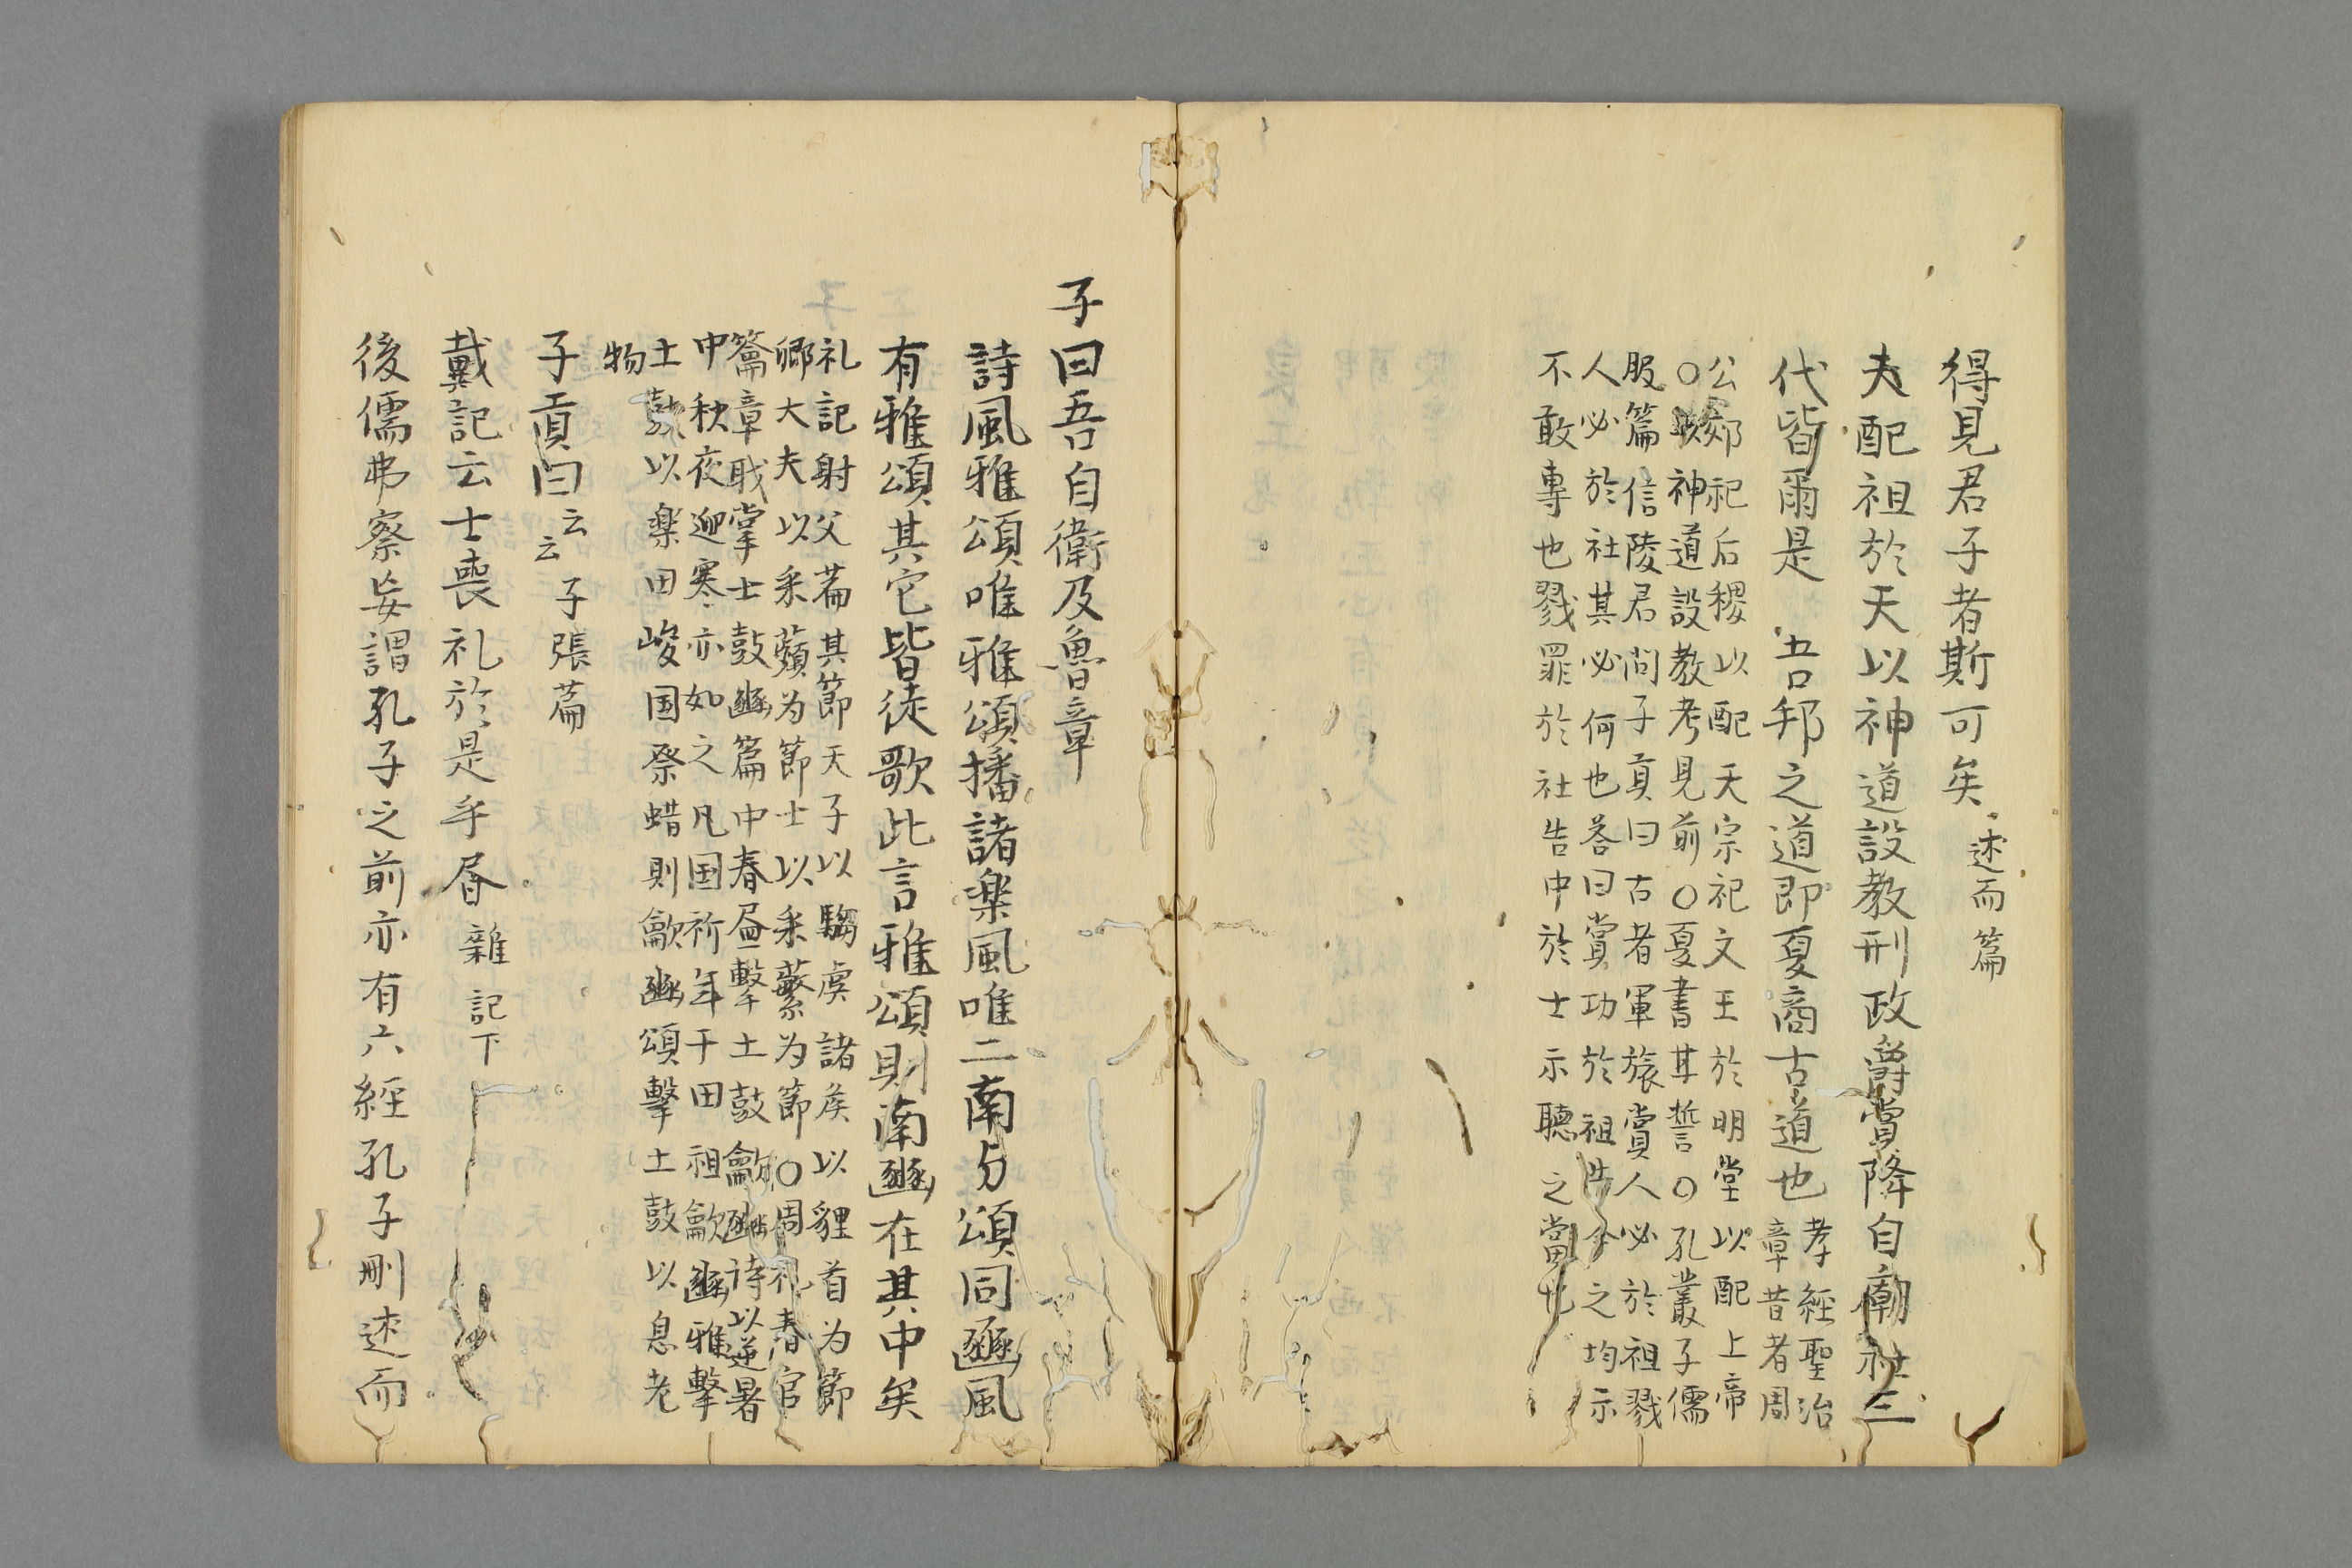 得見君子者斯可矣 述而篇
夫配祖於天以神道設教刑政爵賞降自廟社三
代皆爾是 吾邦之道即夏商古道也
孝經聖治
章昔者周
公郊祀后稷以配天宗祀文王於明堂以配上帝
○以神道設教考見前○夏書甘誓○孔叢子儒
服篇信陵君問子貢曰古者軍旅賞人必於祖戮
人必於社其必何也荅曰賞功於祖告分之均示
不敢專也戮罪於社告中於士示聽之當也
子曰吾自衛及魯章
詩風雅頌唯雅頌播諸楽風唯二南与頌同豳風
有雅頌其它皆徒歌此言雅頌則南豳在其中矣
礼記射父萹其節天子以騶虞諸矦以貍首为節
卿大夫以采蘋为節士以采蘩为節○周礼春官
籥章戠掌士鼓豳篇中春昼擊土鼓龡豳詩以逆暑
中秋夜迎寒亦如之凡国祈年于田祖龡豳雅擊
土鼓以楽田峻国祭蜡則龡豳頌擊土鼓以息老
物
子貢曰云云 子張萹
戴記云士喪礼於是乎昏 雜記下
後儒弗察妄謂孔子之前亦有六經孔子刪述而